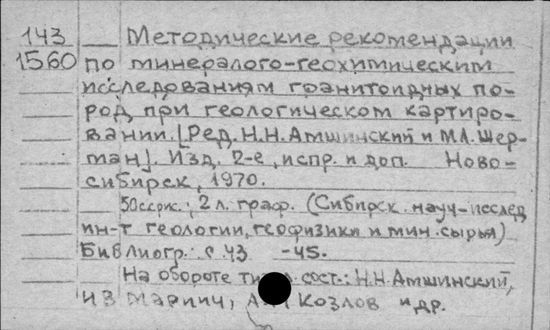 143 Методические рекомендации
1560 по минералого-геохимическим
исследованиям гранитоидных по-
род при геологическом картиро-
вании. [Ред. Н.Н. Амшинский и М.Л. Шер-
ман]. Изд. 2-е, испр. и доп. Ново-
сибирск, 1970.
50с. с рис.; 2 л. граф. (Сибирск. науч-исслед
ин-т геологии, геофизики и мин. сырья)
Библиогр.: с 43 -45.
На обороте сост.: Н.Н. Амшинский,
И В Марич, Козлов и др.